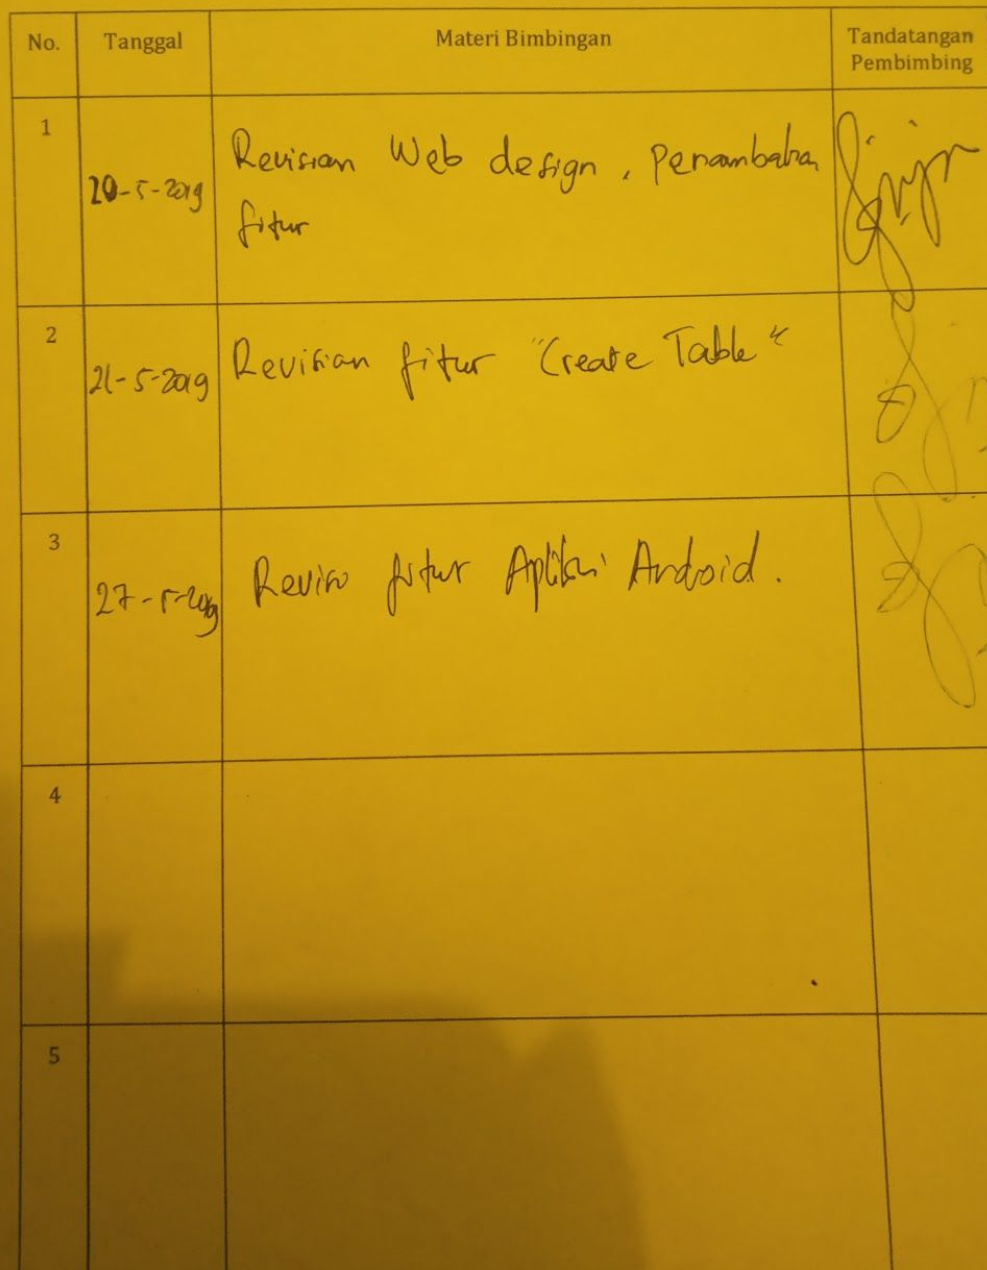 No. Tanggal Materi Bimbingan Tandatangan
Pembimbing
1
20-5-2019 Revisian Web design, Penambahan
fitur
2
21-5-2019 Revisian fitur "Create Table"
3
27-5-2019 Revisi fitur Aplikasi Android.
4
5